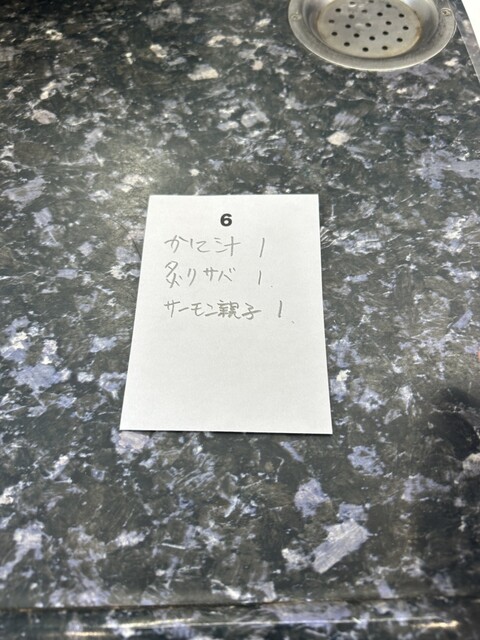 6
かに汁 1
炙りサバ 1.
サーモン親子 1.